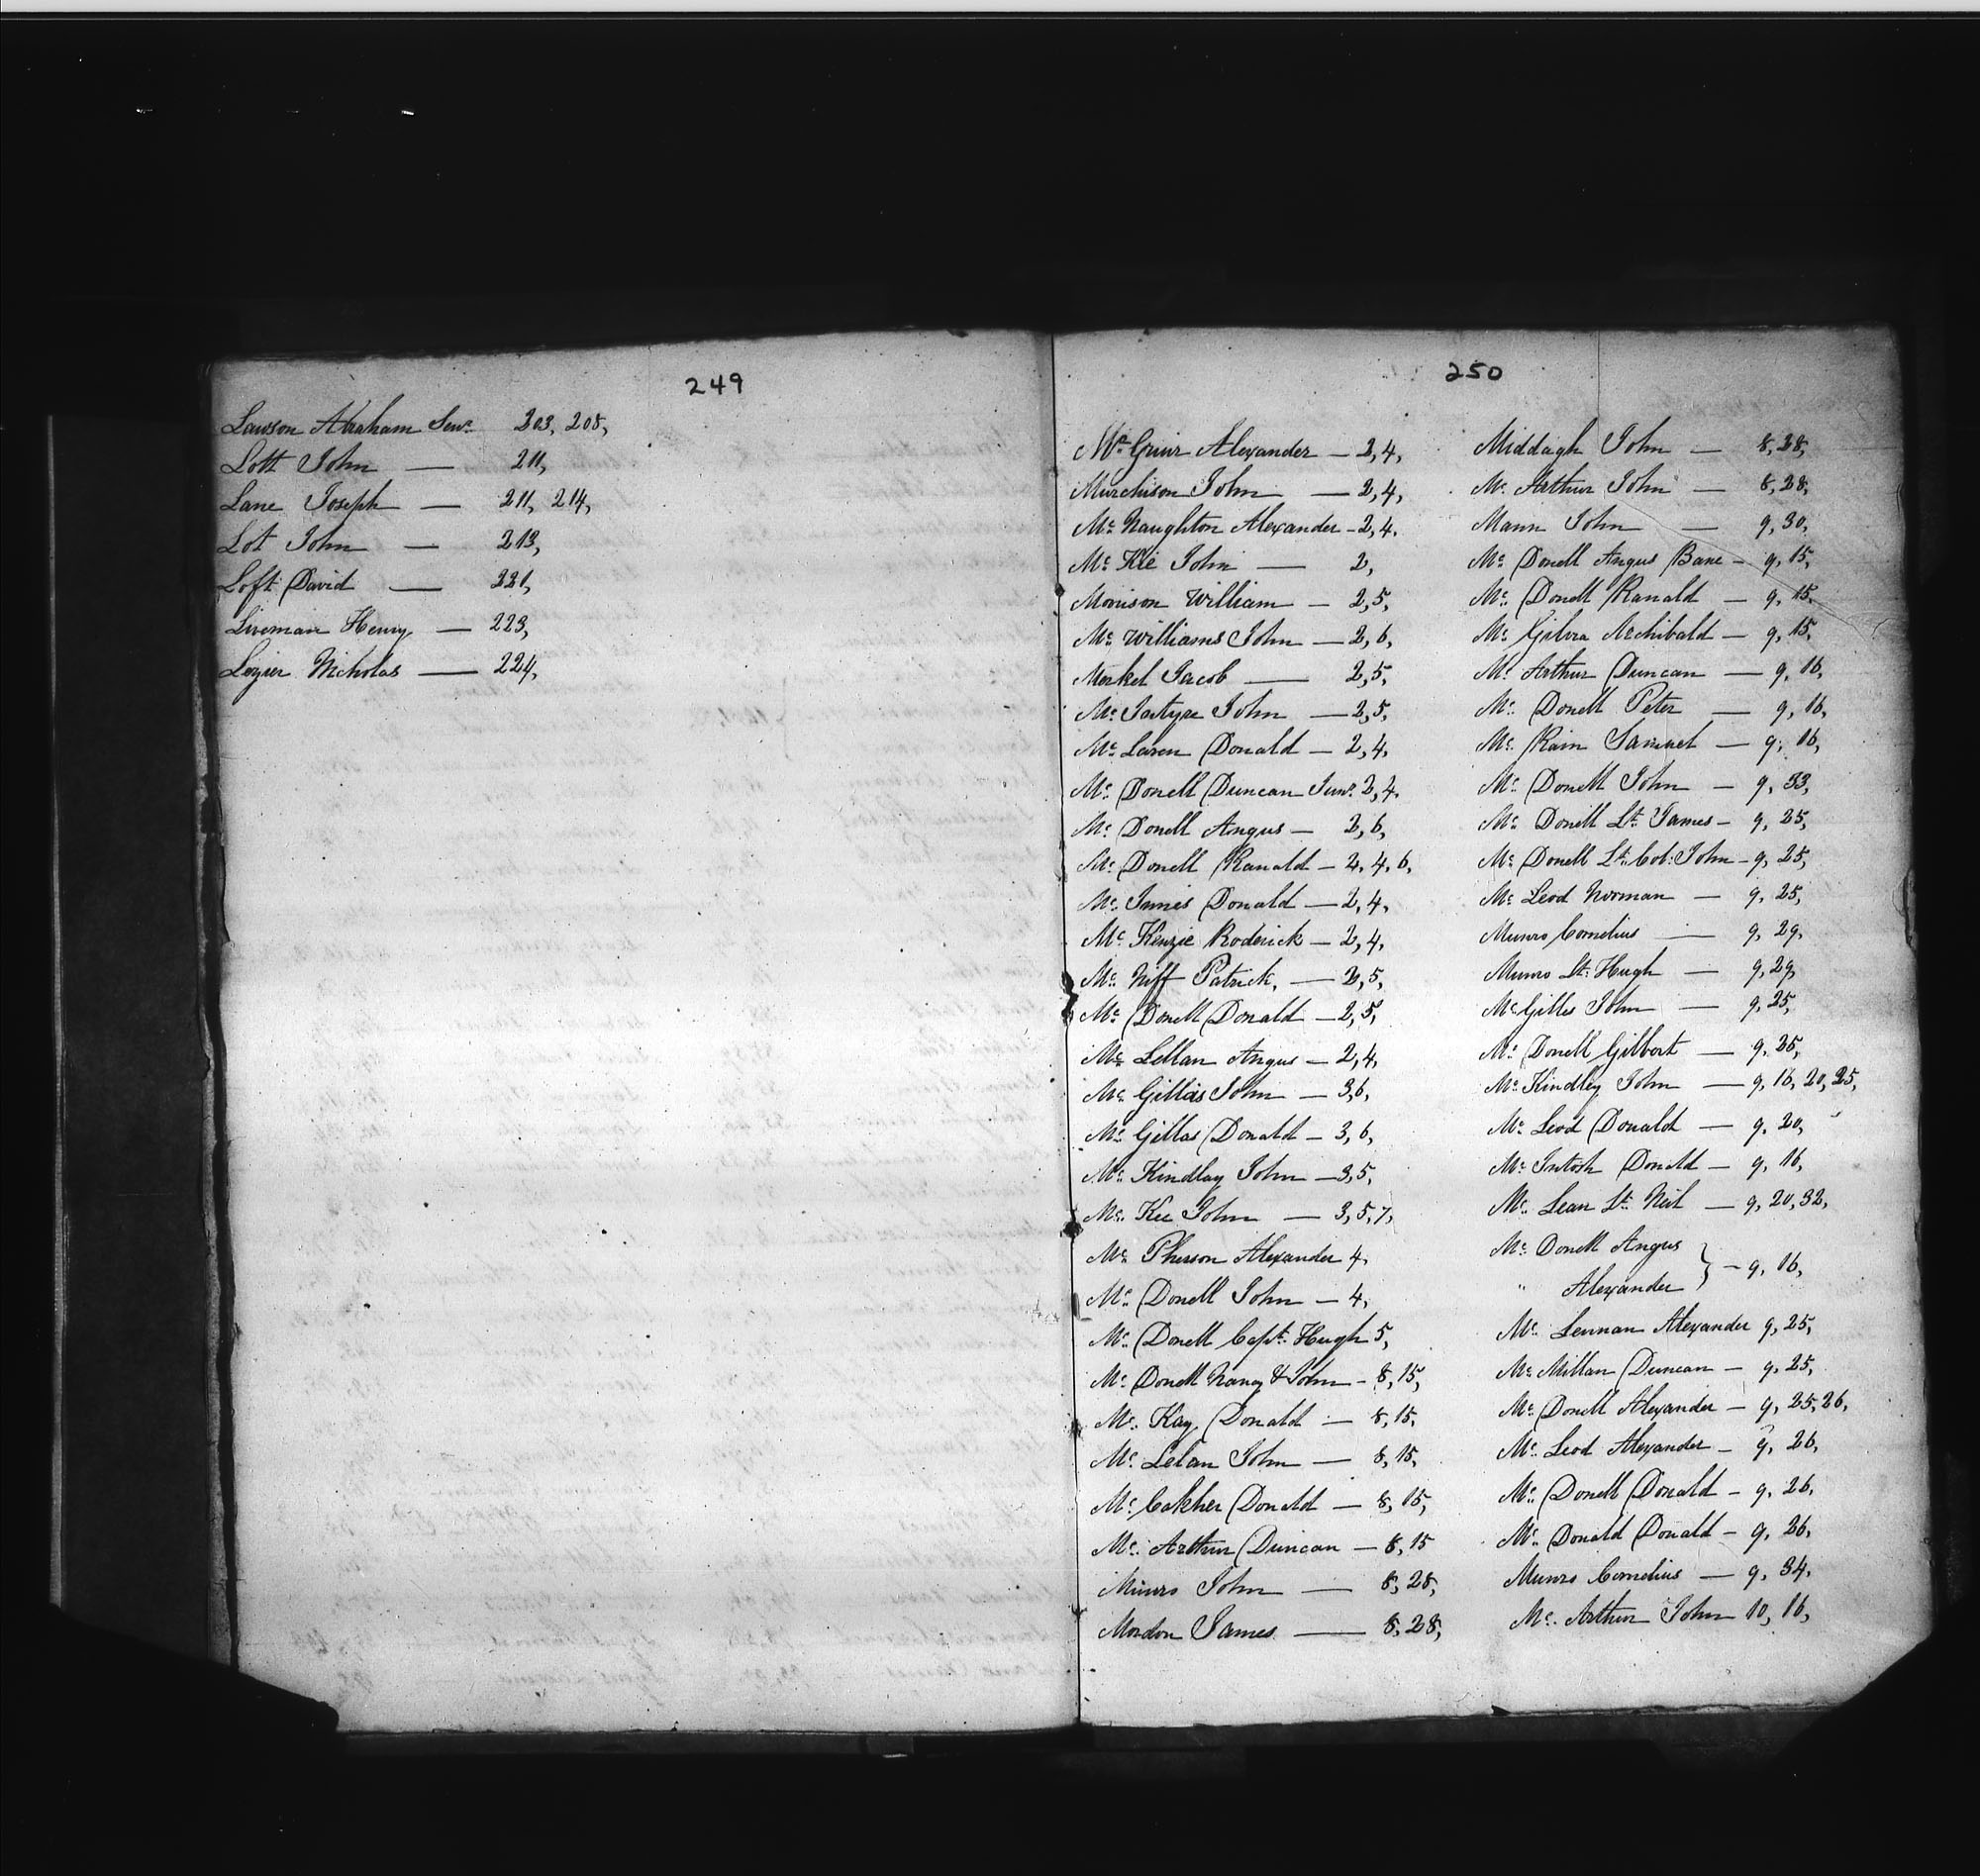 249
Lawson Abraham Senr. 203, 208,
Lott John — 211,
Lane Joseph — 211, 214,
Lot John — 213,
Loft David — 221,
Liveman Henry — 223,
Lozier Nicholas — 224,
250
Mc. Gruir Alexander — 2,4,
Murchison John — 2,4,
Mc. Naughton Alexander - 2,4.
Mc. Kie John — 2,
Morrison William — 2,5,
Mc. Williams John — 2,6,
Merkel Jacob — 2,5,
Mc. Intyre John — 2,5,
Mc. Laren Donald — 2,4,
Mc. Donell Duncan Junr. 2,4.
Mc. Donell Angus — 2,6,
Mc. Donell Ranald — 2,4,6,
Mc. Innis Donald — 2,4,
Mc. Kenzie Roderick — 2,4,
Mc. Niff Patrick, — 2,5,
Mc. Donell Donald — 2,5,
Mc. Lellan Angus — 2,4,
Mc. Gillas John — 3,6,
Mc. Gillas Donald — 3,6,
Mc. Kindlay John — 3,5,
Mc. Kee John — 3,5,7,
Mc. Pherson Alexander 4,
Mc. Donell John — 4,
Mc. Donell Capt. Hugh 5,
Mc. Donell Nancy & John - 8,15,
Mc. Kay Donald — 8,15,
Mc. Lelan John — 8,15,
Mc. Cakher Donald — 8,15,
Mc. Arthur Duncan — 8,15
Munro John — 8,28,
Mordon James — 8,28,
Middagh John — 8,28,
Mc. Arthur John — 8,28,
Mann John — 9,30,
Mc. Donell Angus Bane — 9,15,
Mc. Donell Ranald — 9,15.
Mc. Gilvra Archibald — 9,15,
Mc. Arthur Duncan — 9,16,
Mc. Donell Peter — 9,16,
Mc. Kain Samuel — 9,16,
Mc. Donell John — 9,33,
Mc. Donell Lt. James — 9,25,
Mc. Donell Lt. Col: John - 9,25,
Mc. Leod Norman — 9,25,
Munro Cornelius — 9,29.
Munro Lt. Hugh — 9,29,
Mc. Gilles John — 9,25,
Mc. Donell Gilbert — 9,25,
Mc. Kindley John — 9,16,20,25,
Mc. Leod Donald — 9,20,
Mc. Intosh Donald — 9,16,
Mc. Lean Lt. Neil — 9,20,32,
Mc. Donell Angus
" Alexander } — 9,16,
Mc. Lennan Alexander 9,25,
Mc. Millan Duncan — 9,25,
Mc. Donell Alexander — 9,25,26,
Mc. Leod Alexander — 9,26,
Mc. Donell Donald - 9,26.
Mc. Donald Donald — 9,26.
Munro Cornelius — 9,34.
Mc. Arthur John 10,16,